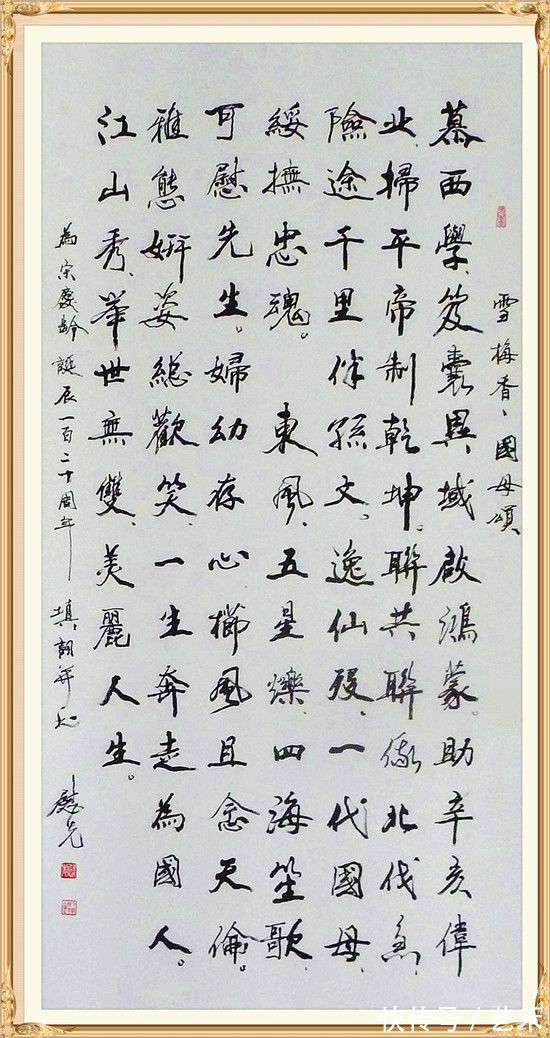 雪梅香、國母頌
慕西學、笈囊異域啟鴻蒙。助辛亥偉
业、掃平帝制乾坤。聯共聯俄北伐急、
險途千里伴孫文。逸仙歿、一代國母、
綏撫忠魂。 東風、五星爍、四海笙歌、
可慰先生。婦幼存心、櫛風且念天倫。
雅態妍姿總歡笑、一生奔走為國人。
江山秀、舉世無雙、美麗人生。
為宋慶齡誕辰一百二十周年——填詞并 慰先
快传号 / 艺术